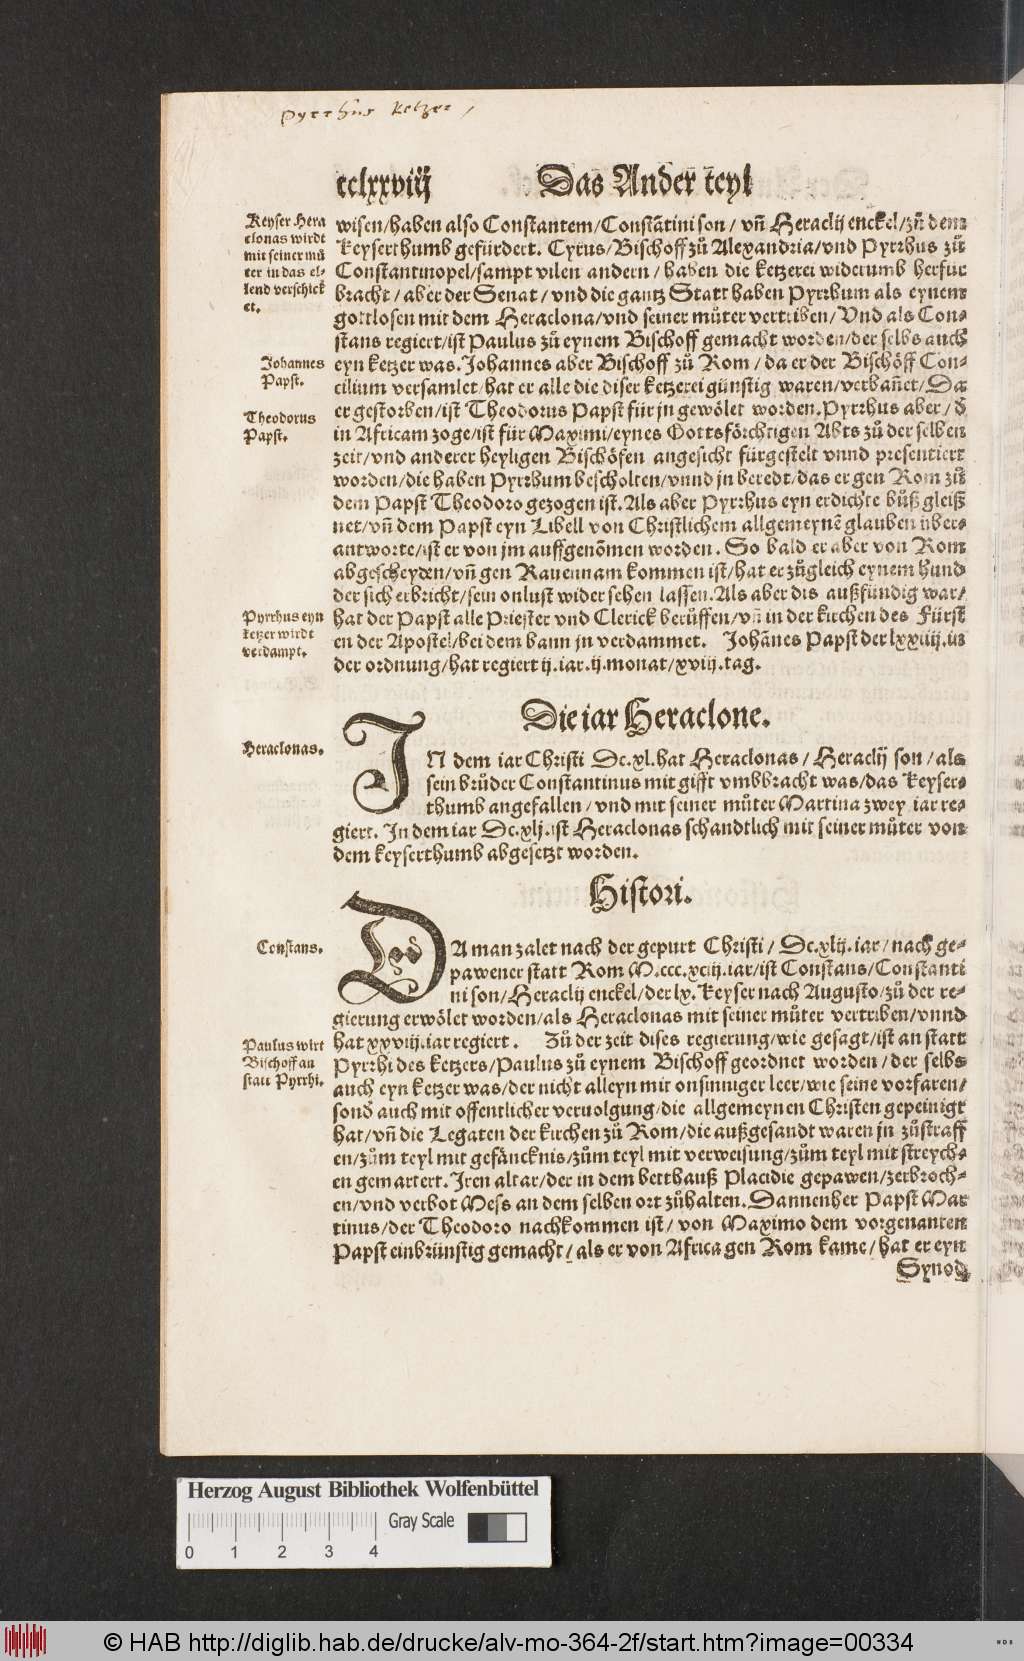 Pyrrhus ketzer /
cclxxviij
Das Ander teyl
Keyser Hera
clonas wirdt
mit seiner mů
ter in das el⸗
lend verschick
et.
wisen/haben also Constantem/Constātini son / vñ Heraclij enckel/zů dem
Keyserthumb gefürdert. Cyrus/Bischoff zů Alexandria/vnd Pyrrhus zů
Constantinopel/sampt vilen andern / haben die ketzerei widerumb herfür
bracht / aber der Senat / vnd die gantz Statt haben Pyrrhum als eynen
gottlosen mit dem Heraclona/vnd seiner můter vertriben/Vnd als Con⸗
stans regiert/ist Paulus zů eynem Bischoff gemacht worden/der selbs auch
Johannes
Papst.
eyn ketzer was. Johannes aber Bischoff zů Rom / da er der Bischöff Con⸗
cilium versamlet/hat er alle die diser ketzerei günstig waren/verbañet/Da
Theodorus
Papst.
er gestorben/ist Theodorus Papst für jn gewölet worden. Pyrrhus aber/ d̄
in Africam zoge/ist für Maximi/eynes Gottsförchtigen Abts zů der selben
zeit/vnd anderer heyligen Bischöfen angesicht fürgestelt vnnd presentiert
worden/die haben Pyrrhum bescholten/vnnd jn beredt/das er gen Rom zů
dem Papst Theodoro gezogen ist. Als aber Pyrrhus eyn erdichte bůß gleiß
net/vñ dem Papst eyn Libell von Christlichem allgemeynē glauben über⸗
antworte/ist er von jm auffgenōmen worden. So bald er aber von Rom
abgescheyden/vñ gen Rauennam kommen ist/hat er zůgleich eynem hund
der sich erbricht/sein onlust wider sehen lassen. Als aber dis außfündig war/
Pyrrhus eyn
ketzer wirdt
verdampt.
hat der Papst alle Priester vnd Clerick berůffen/vñ in der kirchen des Fürst
en der Apostel/bei dem bann jn verdammet. Johānes Papst der lxxiiij. in
der ordnung/hat regiert ij.iar.ij.monat/xviij.tag.
Die iar Heraclone.
Heraclonas.
IN dem iar Christi Dc.xl.hat Heraclonas / Heraclij son / als
sein brůder Constantinus mit gifft vmbbracht was/das Keyser⸗
thumb angefallen / vnd mit seiner můter Martina zwey iar re⸗
giert. In dem iar Dc.xlj.ist Heraclonas schandtlich mit seiner můter von
dem keyserthumb abgesetzt worden.
Histori.
Constans.
DA man zalet nach der gepurt Christi / Dc.xlij.iar/nach ge⸗
pawener statt Rom M.ccc.xciij.iar/ist Constans/Constanti
ni son/Heraclij enckel/der lx. Keyser nach Augusto/zů der re⸗
gierung erwölet worden/als Heraclonas mit seiner můter vertriben/vnnd
Paulus wirt
Bischoff an
statt Pyrrhi.
hat xxviij.iar regiert. Zů der zeit dises regierung/wie gesagt/ist an statt
Pyrrhi des ketzers/Paulus zů eynem Bischoff geordnet worden / der selbs
auch eyn ketzer was/der nicht alleyn mit onsinniger leer/wie seine vorfaren/
sond̄ auch mit offentlicher veruolgung/die allgemeynen Christen gepeinigt
hat/vñ die Legaten der kirchen zů Rom/die außgesandt waren jn zůstraff
en/zům teyl mit gefäncknis/zům teyl mit verweisung/zům teyl mit streych⸗
en gemartert. Iren altar/der in dem betthauß Placidie gepawen/zerbroch⸗
en/vnd verbot Mess an dem selben ort zůhalten. Dannenher Papst Mar
tinus/der Theodoro nachkommen ist/ von Maximo dem vorgenanten
Papst einbrünstig gemacht/als er von Africa gen Rom kame/hat er eyn
Synod
Herzog August Bibliothek Wolfenbüttel
Gray Scale
0 1 2 3 4
© HAB http://diglib.hab.de/drucke/alv-mo-364-2f/start.htm?image=00334